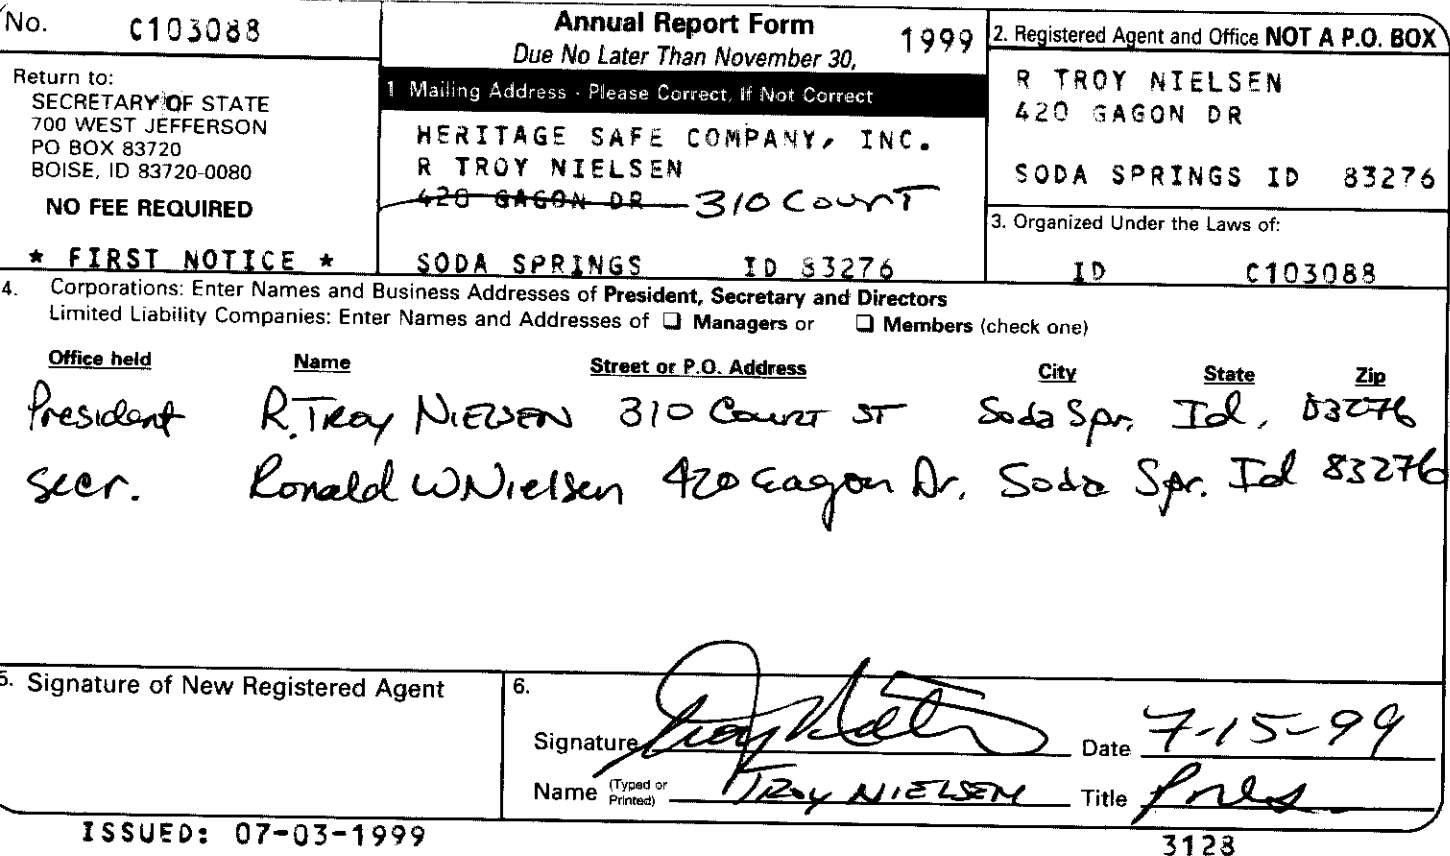 No. C103088
Annual Report Form 1999
Due No Later Than November 30,
Return to:
SECRETARY OF STATE
700 WEST JEFFERSON
PO BOX 83720
BOISE, ID 83720-0080
NO FEE REQUIRED
* FIRST NOTICE *
1 Mailing Address - Please Correct, If Not Correct
HERITAGE SAFE COMPANY, INC.
R TROY NIELSEN
420 GAGON DR 310 Court
SODA SPRINGS ID 83276
2. Registered Agent and Office NOT A P.O. BOX
R TROY NIELSEN
420 GAGON DR
SODA SPRINGS ID 83276
3. Organized Under the Laws of:
ID C103088
4. Corporations: Enter Names and Business Addresses of President, Secretary and Directors
Limited Liability Companies: Enter Names and Addresses of ❑ Managers or ❑ Members (check one)
Office held Name Street or P.O. Address City State Zip
President R. Troy NIELSEN 310 Court ST Soda Spr. Id. 83276
Secr. Ronald W Nielsen 420 Gagon Dr. Soda Spr. Id 83276
5. Signature of New Registered Agent
6.
Signature Date 7-15-99
Name (Typed or Printed) TROY NIELSEN Title Pres.
ISSUED: 07-03-1999
3128